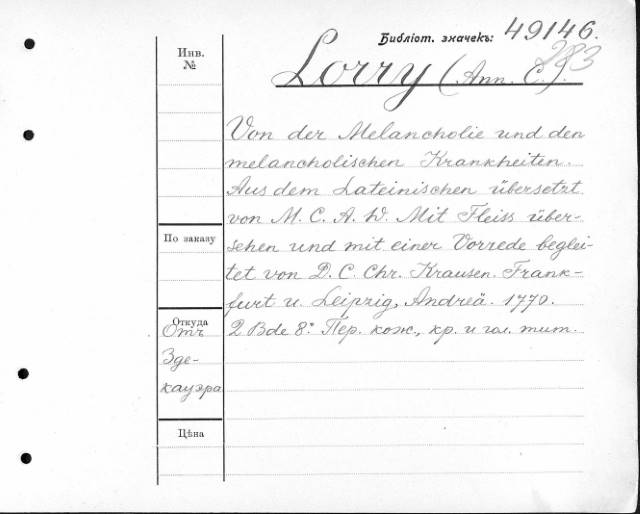 Библіот. значекъ: 49146.
283
Инв.
№
Lorry (Ann. C.).
Von der Melancholie und den
melancholischen Krankheiten.
Aus dem Lateinischen übersetzt
von M. C. A. W. Mit Fleiss über-
sehen und mit einer Vorrede beglei-
tet von D. C. Chr. Krausen. Frank-
furt u. Leipzig, Andreä. 1770.
2 Bde 8º. Пер. кож., кр. и гол. тит.
По заказу
Откуда
Отъ
Зде-
кауэра
Цѣна